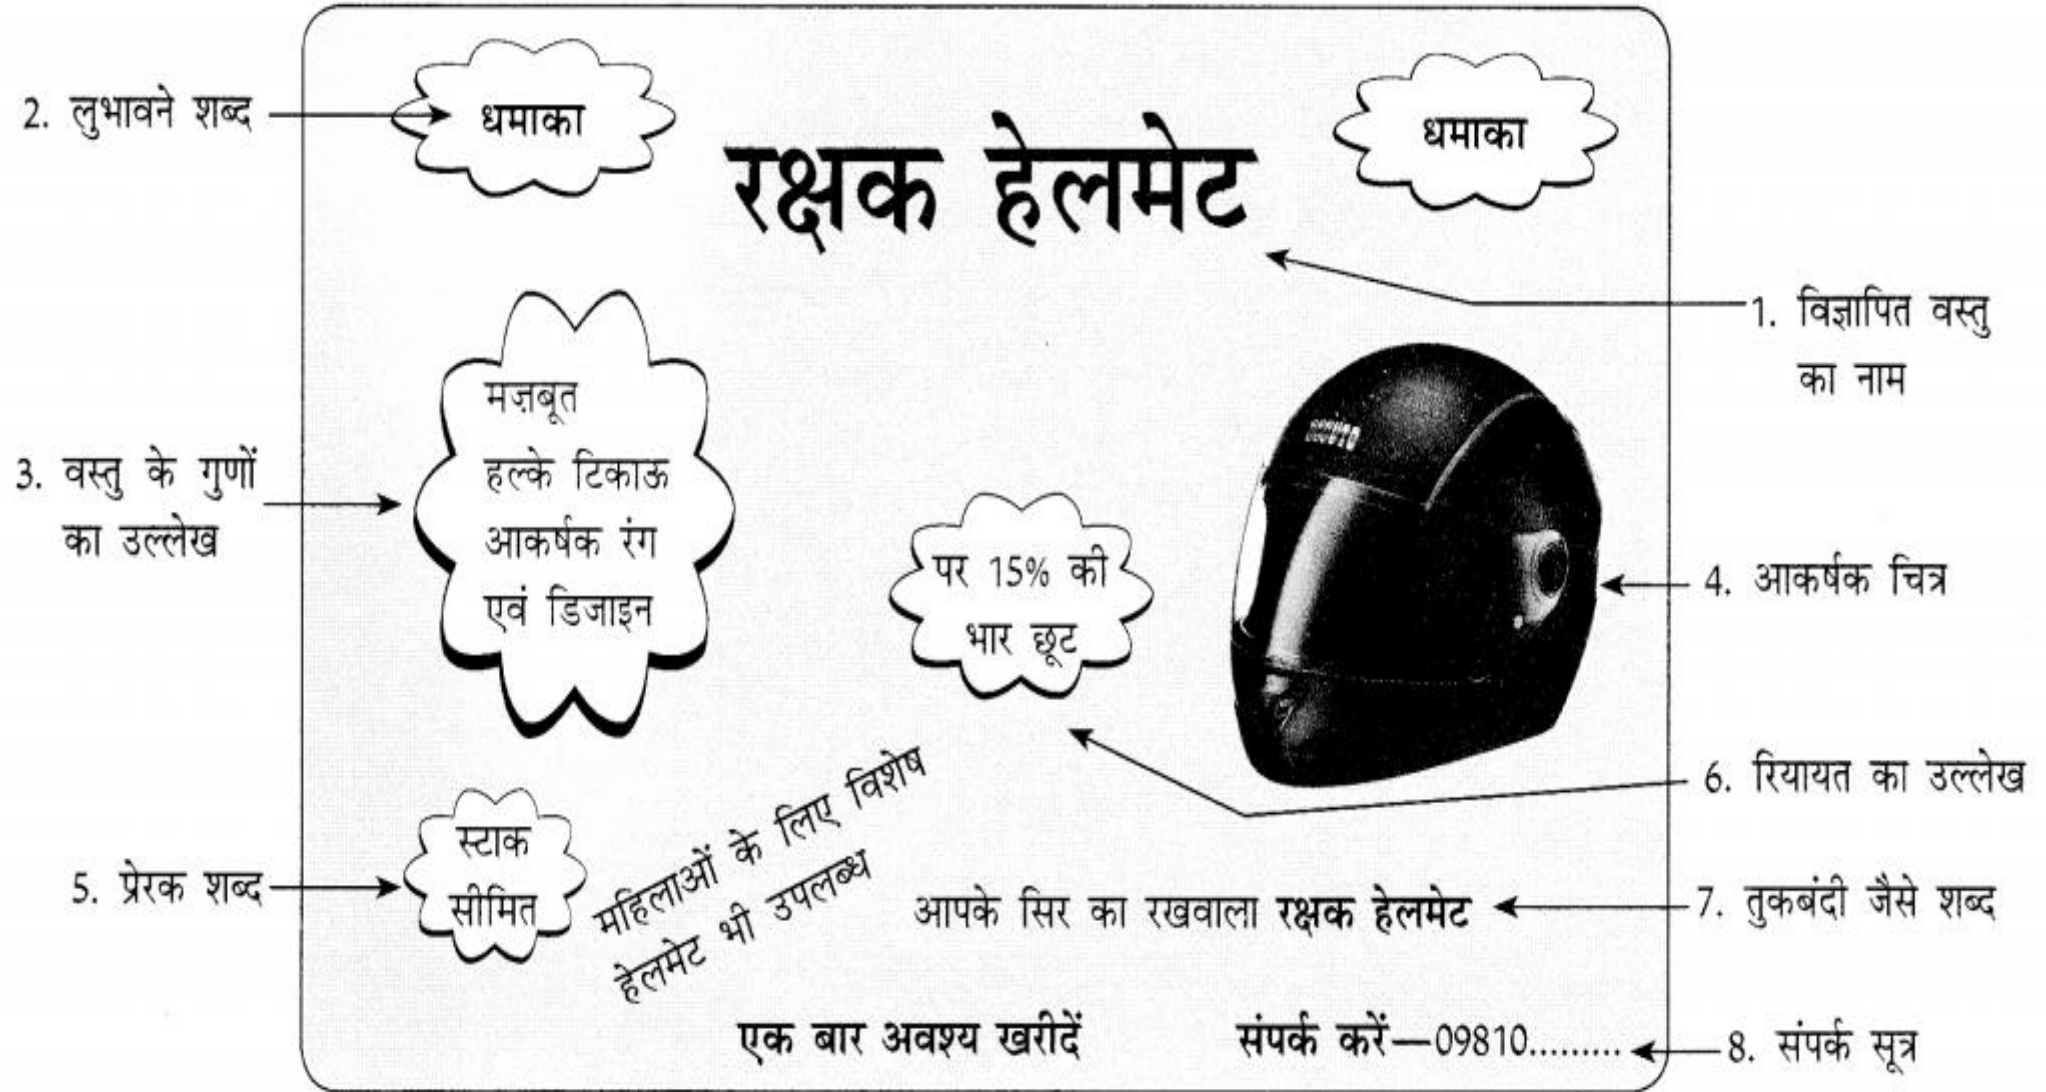 2. लुभावने शब्द
धमाका
धमाका
रक्षक हेलमेट
1. विज्ञापित वस्तु
का नाम
3. वस्तु के गुणों
का उल्लेख
मज़बूत
हल्के टिकाऊ
आकर्षक रंग
एवं डिजाइन
पर 15% की
भार छूट
4. आकर्षक चित्र
6. रियायत का उल्लेख
5. प्रेरक शब्द
स्टाक
सीमित
महिलाओं के लिए विशेष
हेलमेट भी उपलब्ध
आपके सिर का रखवाला रक्षक हेलमेट
7. तुकबंदी जैसे शब्द
एक बार अवश्य खरीदें
संपर्क करें—09810.........
8. संपर्क सूत्र